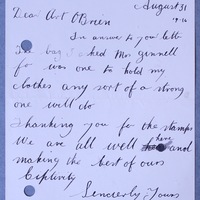 August 31
19-16
Dear Art O'Brien
In ans to your lett
The bag I asked Mrs Ginnell
for was one to hold my
clothes any sort of a strong
one will do
Thanking you for the stamps
We are all well here and
making the best of ours
Captivity
Sincerely Yours